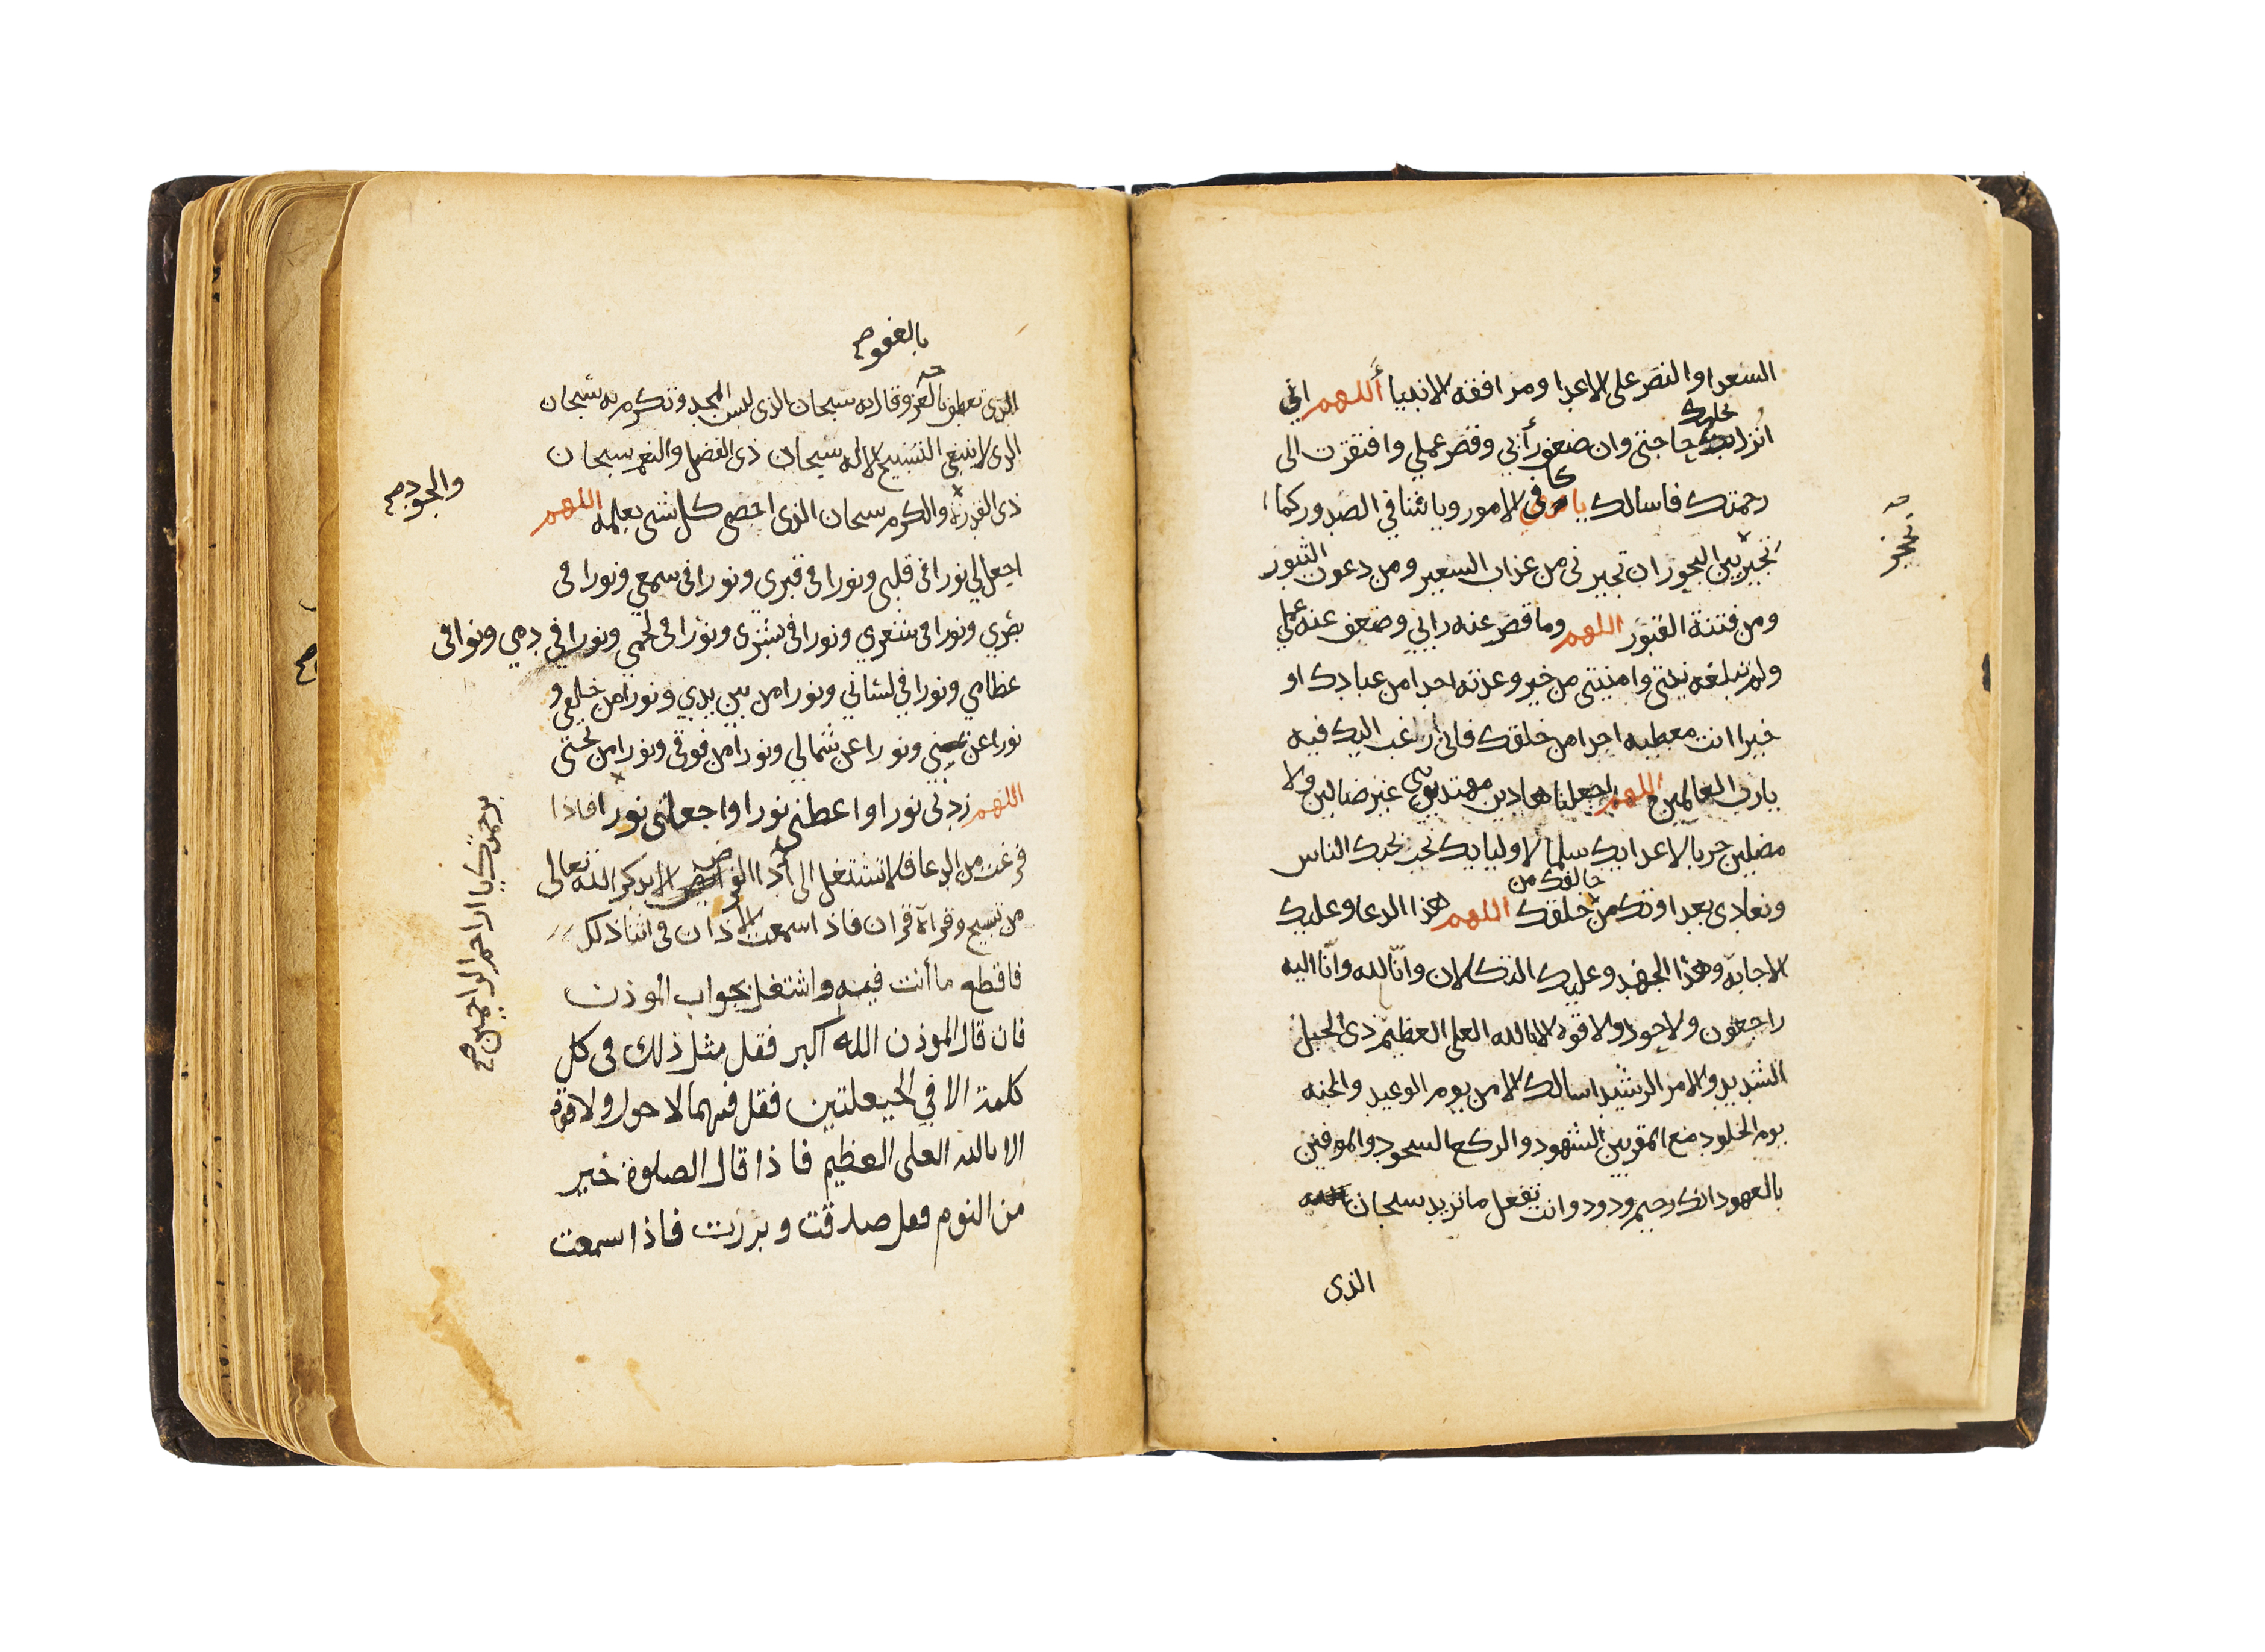 السعدا والنصر على الاعدا ومرافقة الانبيا أللهم اني
انزل بك حاجتي وان ضعف رأيي وقصر عملي وافتقرت الى
رحمتك فاسالك يا كافي الامور ويا شافي الصدور كما
تجير بين البحور ان تجيرني من عذاب السعير ومن دعوة الثبور
ومن فتنة القبور اللهم وما قصر عنه رايي وضعف عنه عملي
ولم تبلغه نيتي وامنيتي من خير وعدته احدا من عبادك او
خيرا انت معطيه احدا من خلقك فاني أرغب اليك فيه
يا رب العالمين اللهم اجعلنا هادين مهتدين غير ضالين ولا
مضلين حربا لاعدايك سلما لاوليايك نحب بحبك الناس
خالفك من
ونعادي بعداوتك من خلقك اللهم هذا الدعا وعليك
الاجابة وهذا الجهد وعليك التكلان وانا لله وانا اليه
راجعون ولا حول ولا قوة الا بالله العلي العظيم ذي الحبل
الشديد والامر الرشيد اسالك الامن يوم الوعيد والجنه
يوم الخلود مع المقربين الشهود والركع السجود والموفين
بالعهود انك رحيم ودود وانت تفعل ما تريد سبحان
الذى
بالعفو صح
الذي تعطف بالعز وقال به سبحان الذي لبس المجد وتكرم به سبحان
الذي لا ينبغي التسبيح الا له سبحان ذي الفضل والنعم سبحان
ذي القدرة والكرم سبحان الذي احصى كل شي بعلمه اللهم
والجود صح
اجعل لي نورا في قلبي ونورا في قبري ونورا في سمعي ونورا في
بصري ونورا في شعري ونورا في بشري ونورا في لحمي ونورا في دمي ونوا في
عظامي ونورا في لساني ونورا من بين يدي ونورا من خلفي و
نورا عن يميني ونورا عن شمالي ونورا من فوقي ونورا من تحتي
اللهم زدني نورا واعطني نورا واجعلني نورا فاذا
برحمتك يا ارحم الراحمين صح
فرغت من الدعا فلا تشتغل الى أدا الفرض الا بذكر الله تعالى
من تسبيح وقرآة قران فاذا سمعت الاذان في اثنا ذلك
فاقطع ما أنت فيه واشتغل بجواب الموذن
فان قال الموذن الله اكبر فقل مثل ذلك في كل
كلمة الا في الحيعلتين فقل فيهما لا حول ولا قوة
الا بالله العلى العظيم فاذا قال الصلوة خير
من النوم فقل صدقت وبررت فاذا سمعت